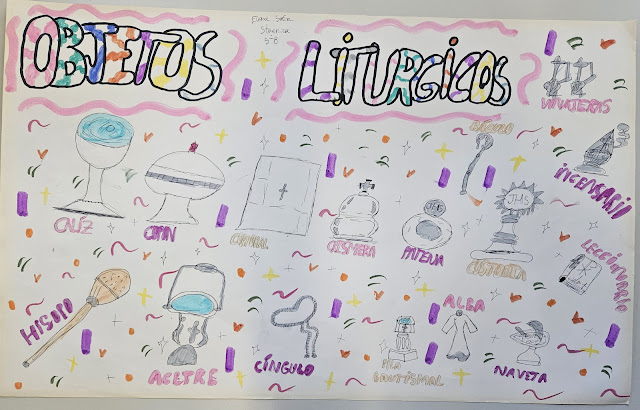 OBJETOS LITURGICOS
5ºB
VINAJERAS
BÁCULO
INCENSARIO
CALÍZ
COPÓN
CORPORAL
CRISMERA
PATENA
JHS
CUSTODIA
LECCIONARIO
HISOPO
ACETRE
CÍNGULO
PILA
BAUTISMAL
ALBA
NAVETA